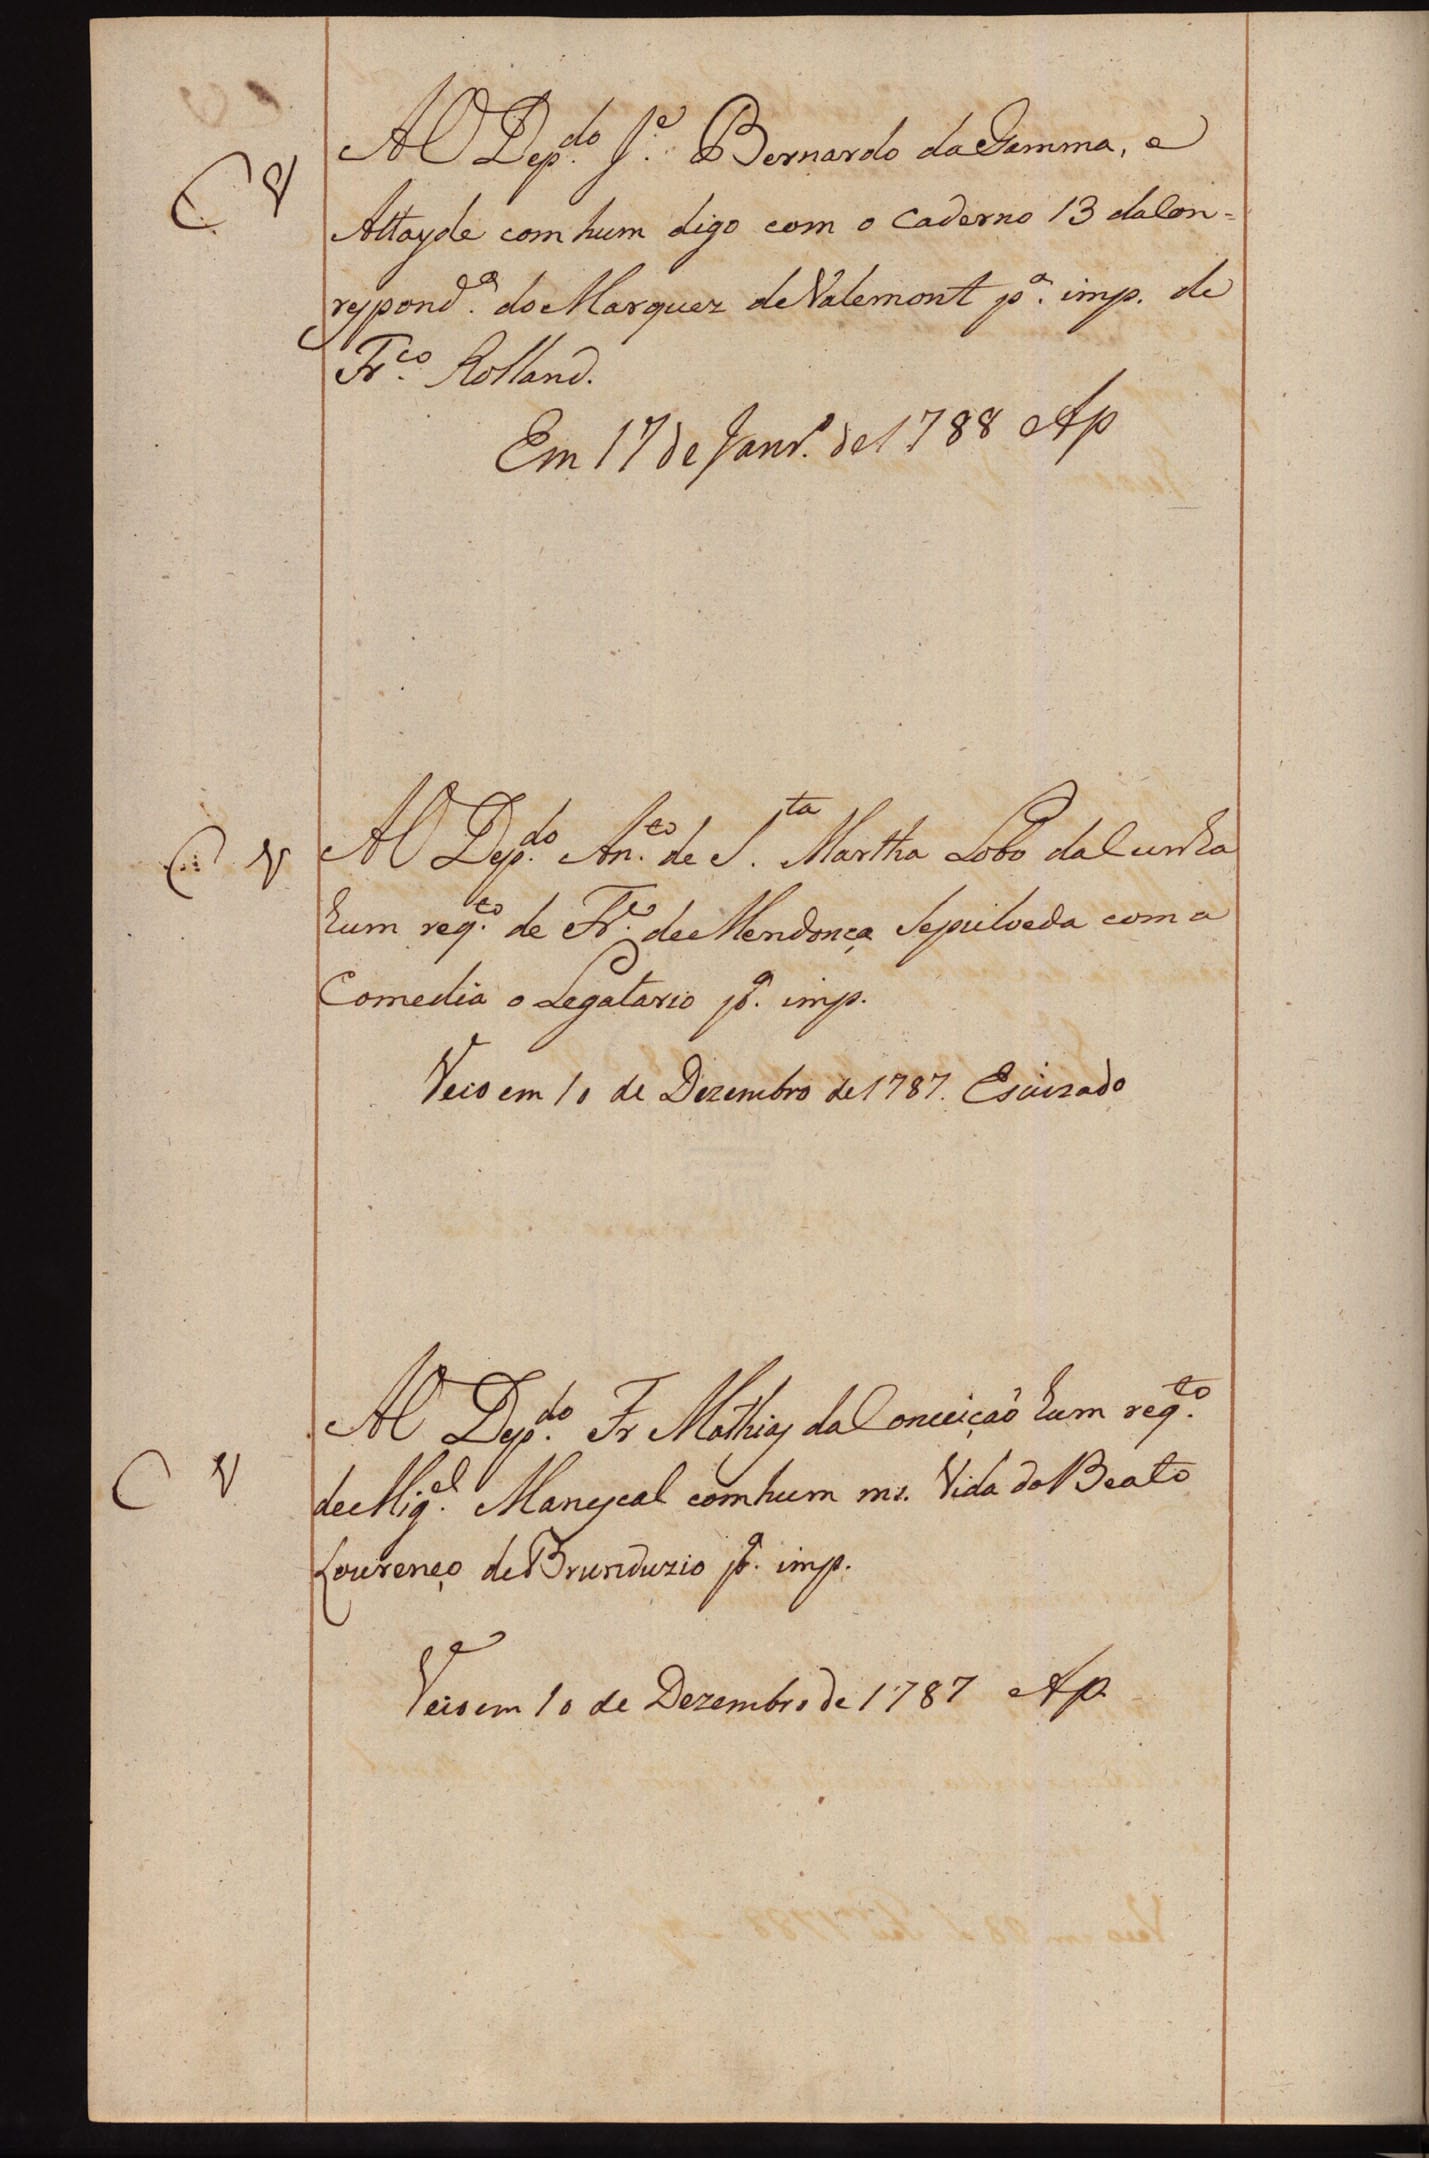 C V
AO Dep.do J.e Bernardo da Gamma, e
Attayde com hum digo com o Caderno 13 da Con-
respond.a do Marquez de Valemont p.a imp. de
Fr.co Rolland.
Em 17 de Janr.o de 1788 Ap
C V
AO Dep.do An.to de S.ta Martha Lobo da Cunha
hum req.to de Fr.co de Mendonça Sepulveda com a
Comedia o Legatario p.a imp.
Veio em 10 de Dezembro de 1787. Escuzado
C V
AO Dep.do Fr Mathias da Conceição hum req.to
de Mig.el Manescal com hum ms. Vida do Beato
Lourenço de Brunduzio p.a imp.
Veio em 10 de Dezembro de 1787 Ap